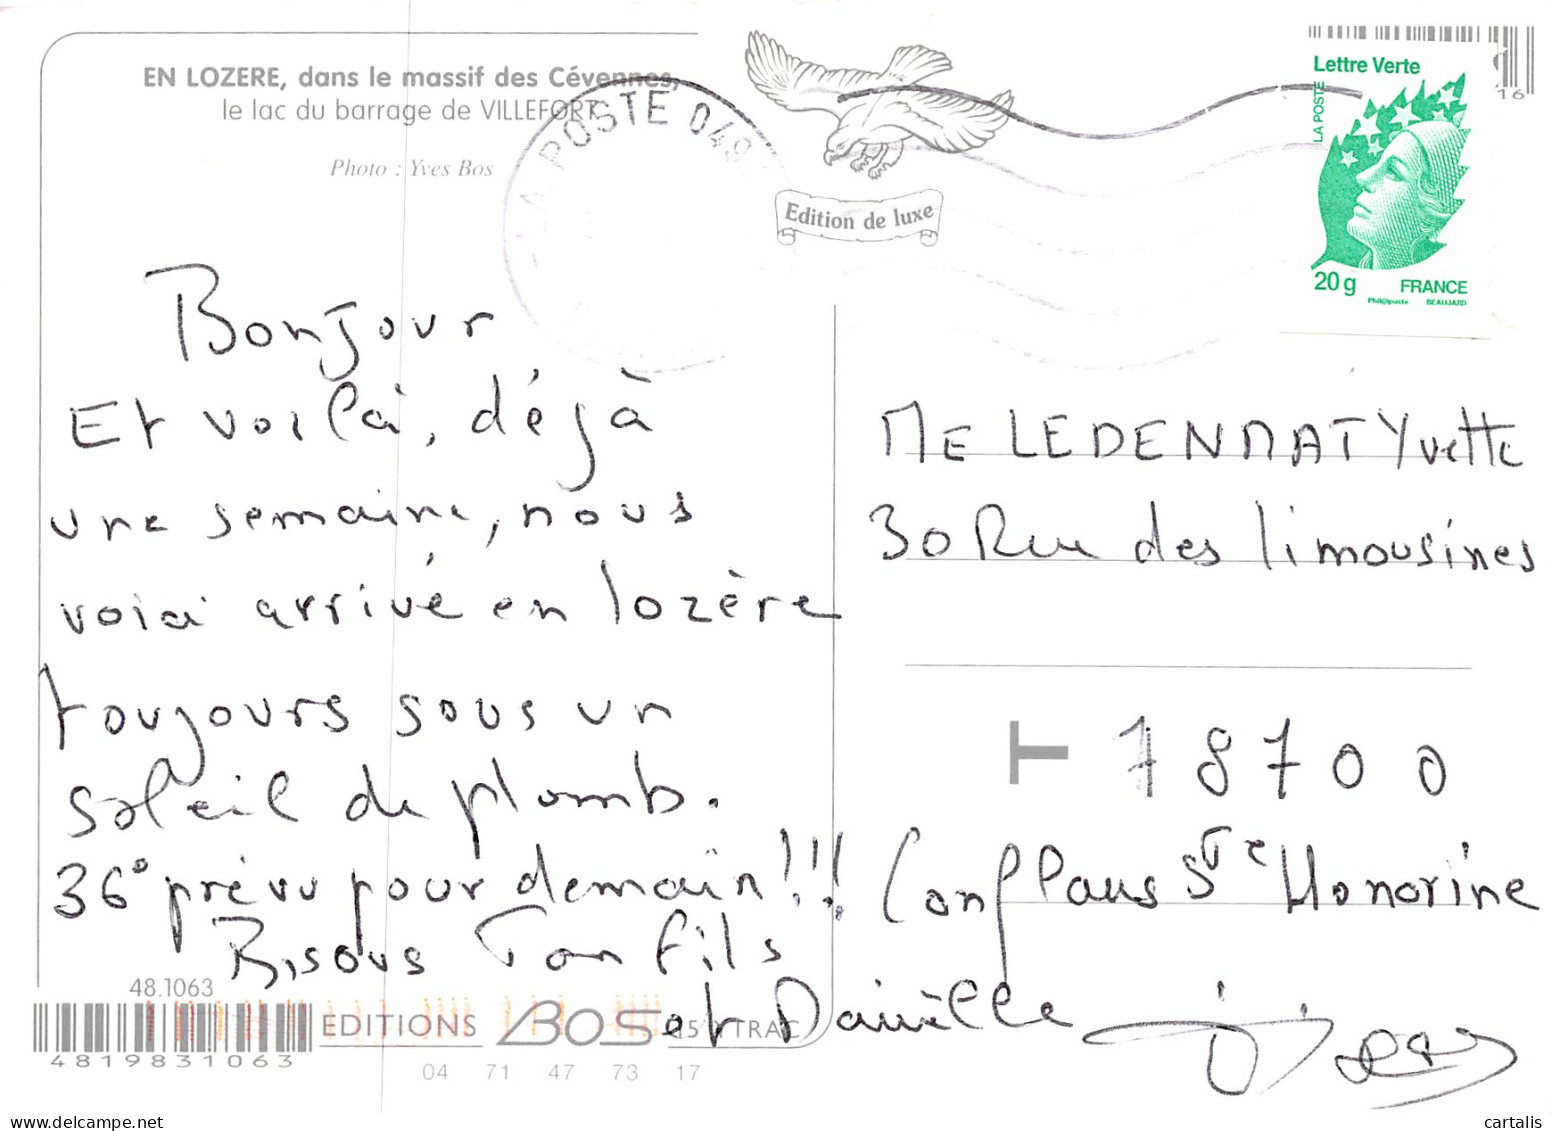 EN LOZERE, dans le massif des Cévennes,
le lac du barrage de VILLEFORT
Photo : Yves Bos
LA POSTE 049
Edition de luxe
Lettre Verte
LA POSTE
20 g FRANCE
Phil@poste BEAUJARD
16
Bonjour
Et voilà, déjà
une semaine, nous
voici arrivé en lozère
toujours sous un
soleil de plomb.
36° prévu pour demain !!!
Bisous Ton fils
et Danièlle
ME LEDENMAT Yvette
30 Rue des limousines
T 78700
Conflans Ste Honorine
48.1063
4819831063
EDITIONS BOS 15 YTRAC
04 71 47 73 17
cartalis